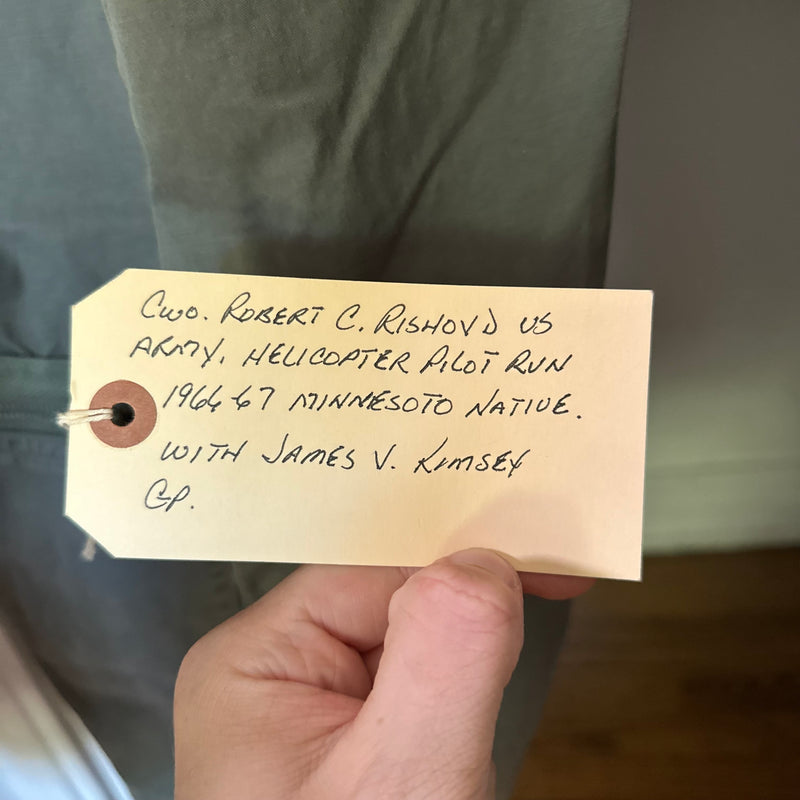 CWO. ROBERT C. RISHOVD US
ARMY. HELICOPTER PILOT RVN
1966-67 MINNESOTO NATIVE.
WITH JAMES V. KIMSEY
GP.